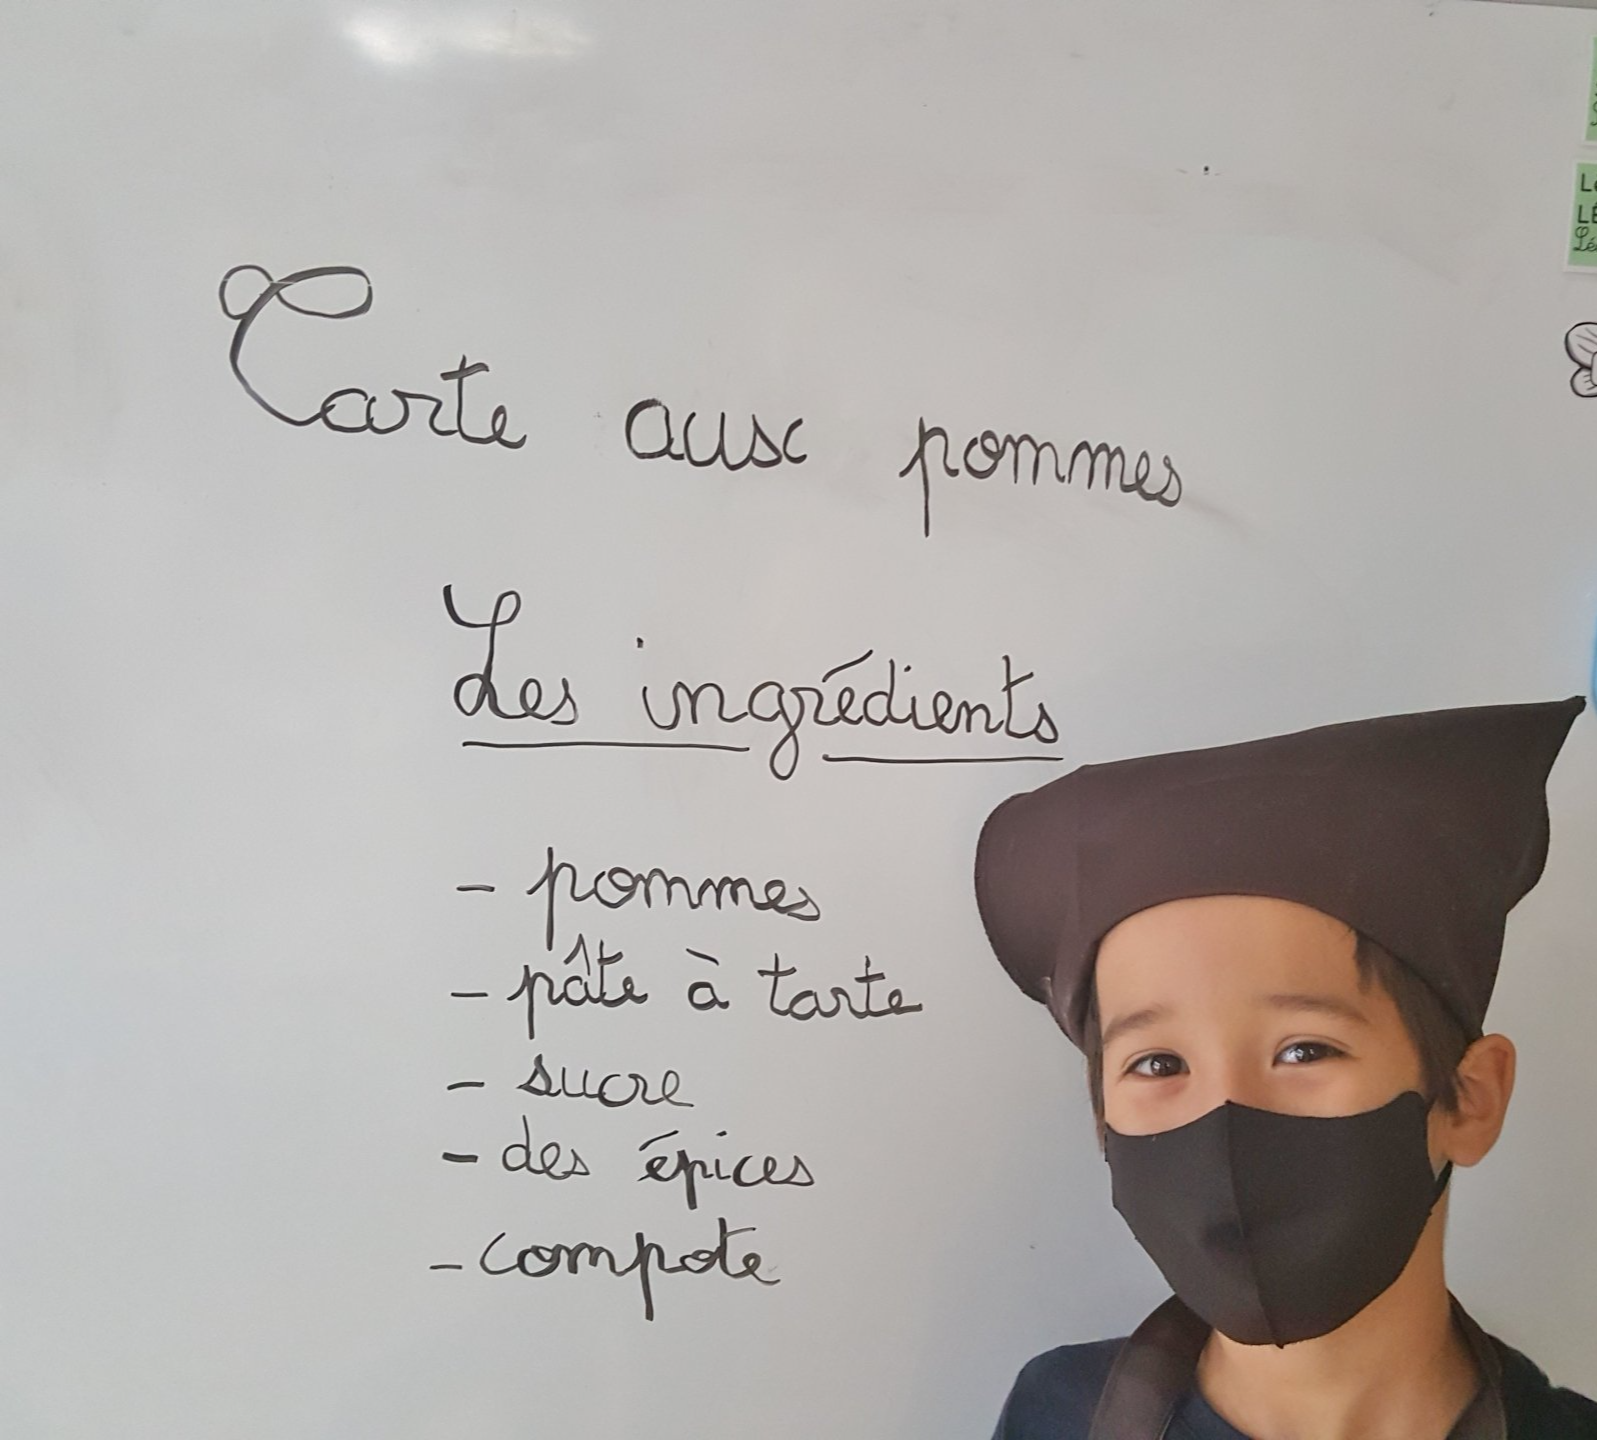 Tarte aux pommes
Les ingrédients
- pommes
- pâte à tarte
- sucre
- des épices
- compote